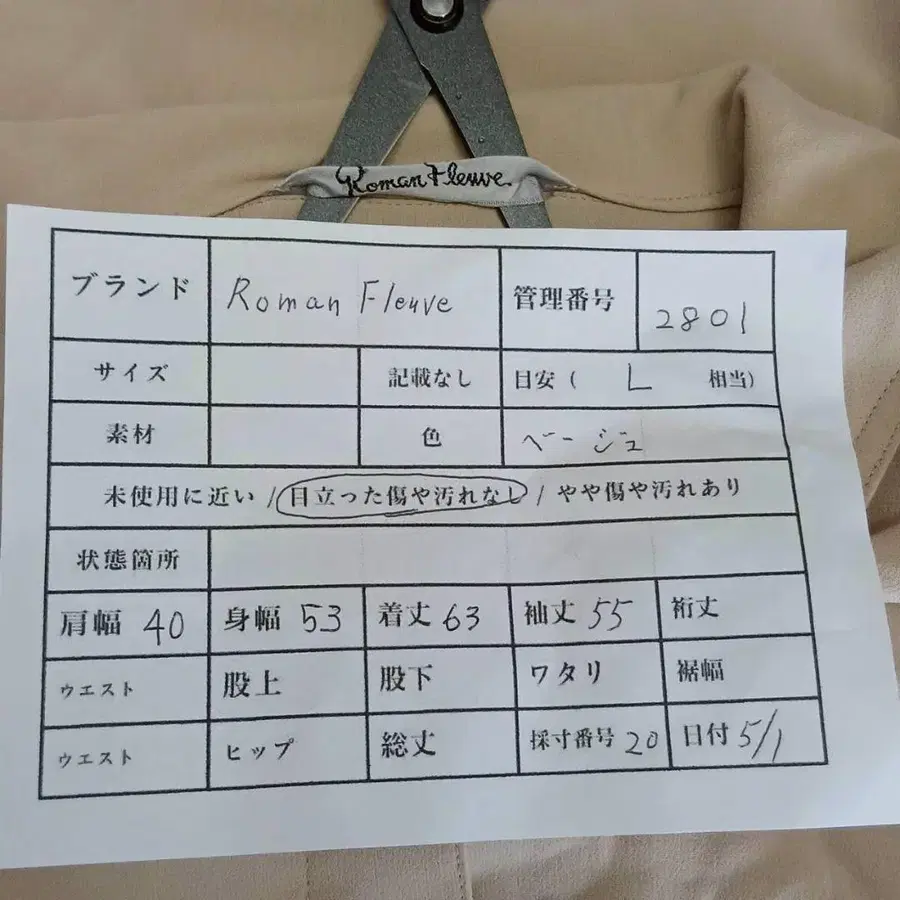 Roman Fleuve.
ブランド Roman Fleuve 管理番号 2801
サイズ 記載なし 目安 ( L 相当)
素材 色 ベージュ
未使用に近い / 目立った傷や汚れなし / やや傷や汚れあり
状態箇所
肩幅 40 身幅 53 着丈 63 袖丈 55 裄丈
ウエスト 股上 股下 ワタリ 裾幅
ウエスト ヒップ 総丈 採寸番号 20 日付 5/1